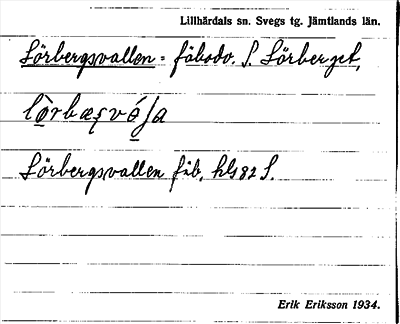 Lillhärdals sn. Svegs tg. Jämtlands län.
Lörbergsvallen = fäbodv. S. Lörberget,
Lörbergsvallen fäb. hls 82 S.
Erik Eriksson 1934.